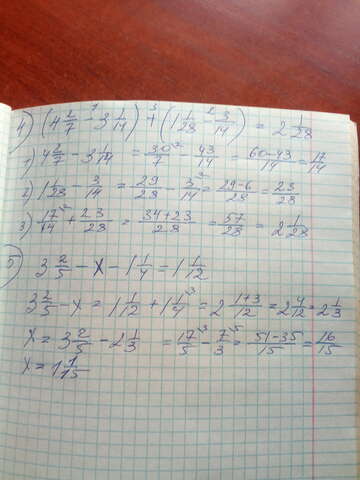 4) (4 2/7 - 3 1/14) + (1 1/28 - 3/14) = 2 1/28
1) 4 2/7 - 3 1/14 = 30/7 - 43/14 = 60-43/14 = 17/14
2) 1 1/28 - 3/14 = 29/28 - 3/14 = 29-6/28 = 23/28
3) 17/14 + 23/28 = 34+23/28 = 57/28 = 2 1/28
5) 3 2/5 - x - 1 1/4 = 1 1/12
3 2/5 - x = 1 1/12 + 1 1/4 = 2 1+3/12 = 2 4/12 = 2 1/3
x = 3 2/5 - 2 1/3 = 17/5 - 7/3 = 51-35/15 = 16/15
x = 1 1/15